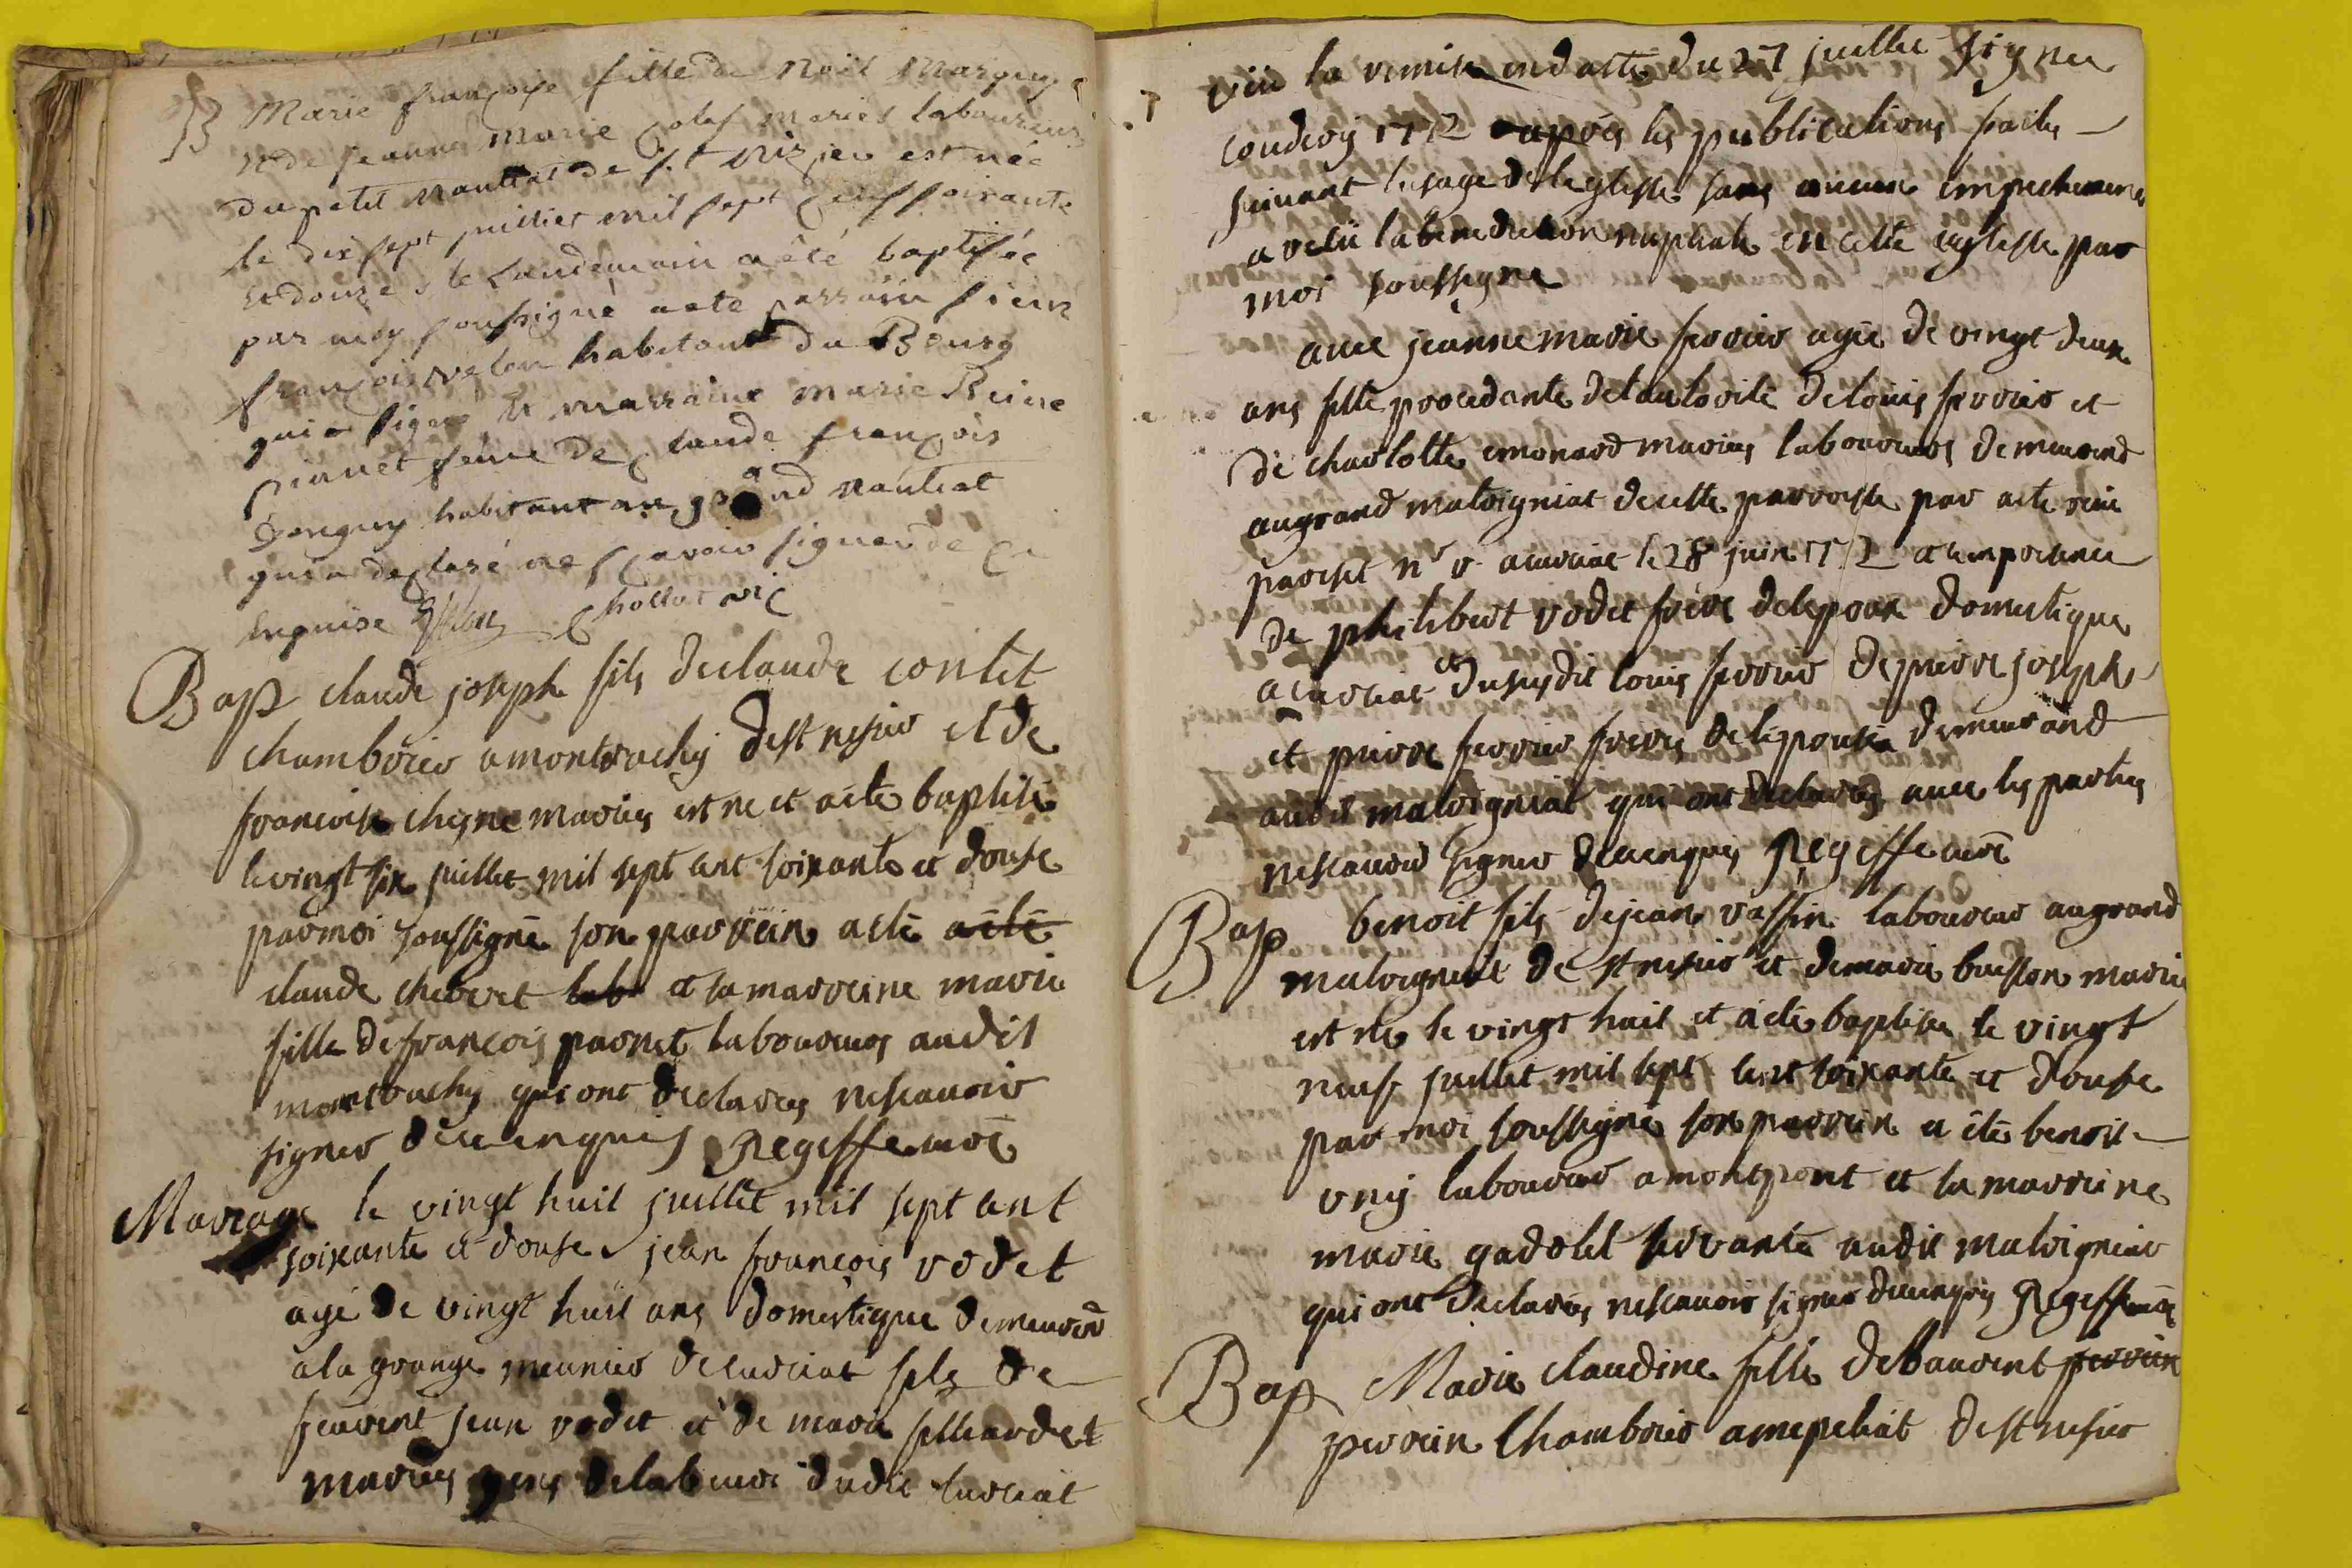 B Marie françoise fille de Noël Marguy
et de jeanne marie colas mariés laboureurs
du petit nanttat de s.t nizier est née
le dix sept juillet mil sept cens soixante
et douze le Landemain a été baptisée
par moy soussigné a eté parrain sieur
françois velon habitant du Bourg
qui a signé et marraine marie Reine
piarret feme de claude françois
habitant au grand nanteat
qui a declaré ne sçavoir signer de ce
enquise chollat vic
Bap claude joseph fils declaude contet
chambrier amontrachy destnesier et de
francoise chesne maries est ne et aété baptisé
levingt six juillet mil sept cent soixante et douse
parmoi soussigné son parrein aeté aété
claude chevret lab et sa marreine marie
fille defrancois parnet laboureur audit
montrachy qui ont declares nescauoir
signer dececenquis regeffe curé
Mareage le vingt huit juillet mil sept cent
soixante et douse jean francois vodet
agé de vingt huit ans domestique demeurand
ala grange meunier decurciat fils de
feurent jean vodet et de marie filliardet
maries gens delabeur dudit curciat
vüe la remise endatte du 27 juillet signee
coudroy 1772 apres les publications faites
suivant lusage delesglesse sans aucune empechement
a recü labenediction nuptiale en cette eglesse par
moi soussigne
avec jeanne marie ferrier agée de vingt deux
ans fille procedante delautorité delouis ferrier et
de charlotte emonard maries laboureurs demeurand
augrand malvigniat decette parroisse par acte recu
paroset n.re r. acurciat le 28 juin 1772 et enpresence
de philibert vodet frere delepoux domestique
acurciat et dususdit louis ferrier depierre joseph
et pierre ferrier freres delepouse demeurand
audit malvigniat qui ont declares avec les parties
nescauoir signer decenquis regeffe curé
Bap benoit fils dejean vassin laboureur augrand
malvigniat de stnesier et demarie buisson maries
est ne le vingt huit et aété baptise le vingt
neuf juillet mil sept cent soixante et douse
par moi soussigné son parrein a été benoit
vny laboureur amontpont et sa marreine
marie gadolet servante audit malvigniat
qui ont declares nescauoir signer decenquis regeffe curé
Bap Marie claudine fille delaurent perrein
perrein chambrier amepeliat destnesier